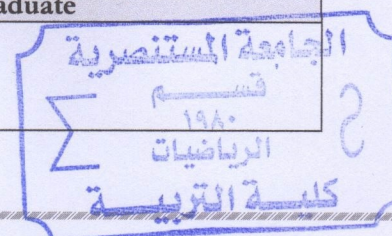 aduate
الجامعة المستنصرية
قسم
١٩٨٠
الرياضيات
كلية التربية